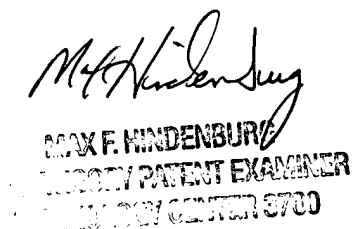 Max Hindenburg
MAX F. HINDENBURG
PATENT EXAMINER
CENTER 3700